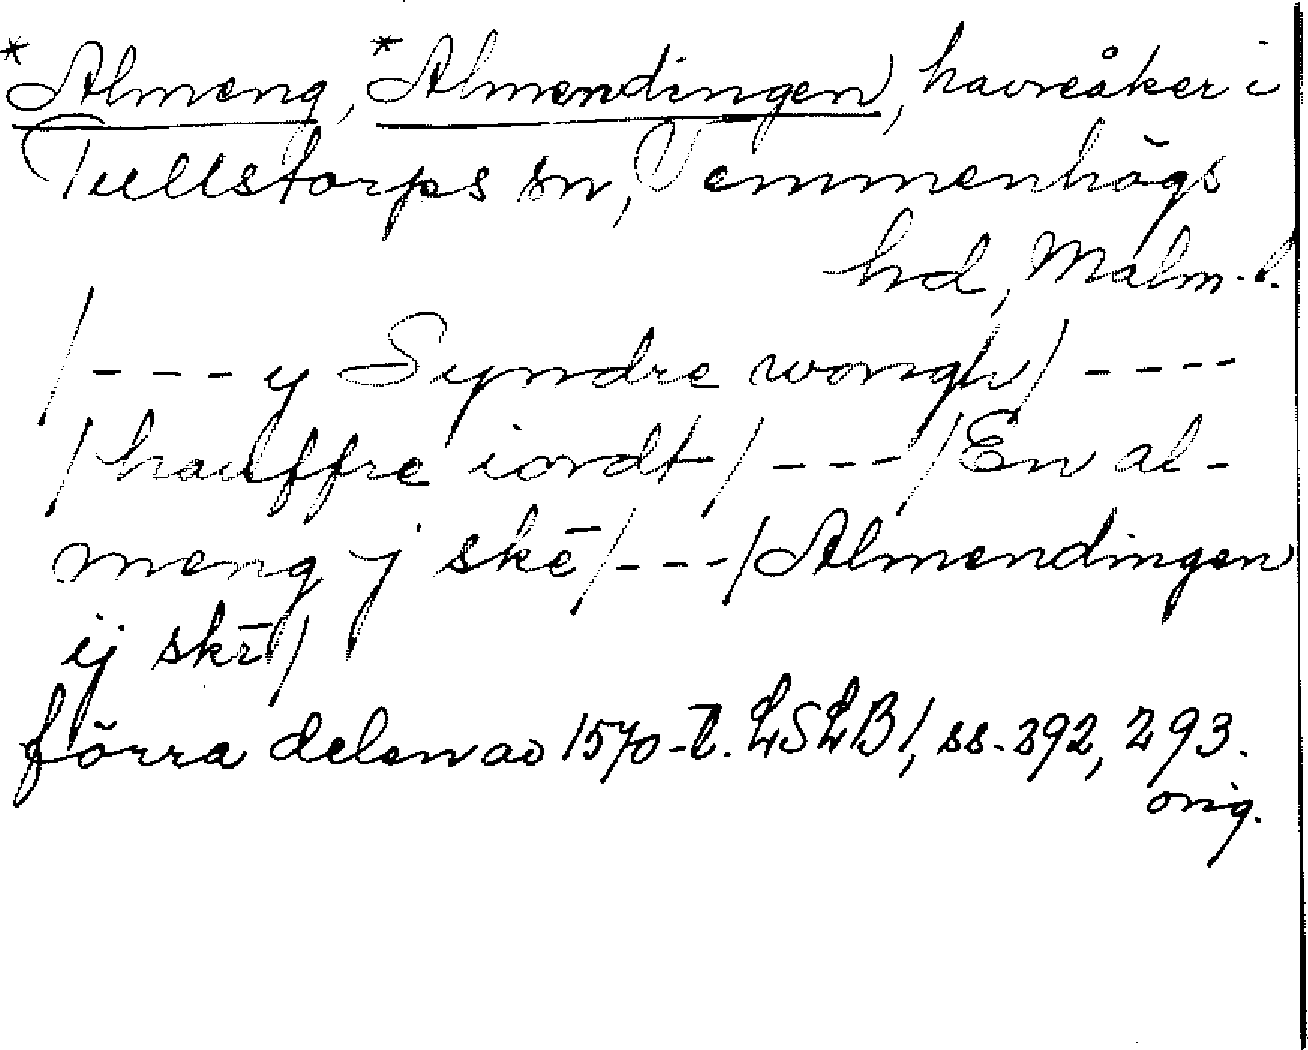 *Almeng, *Almendingen, havreåker i
Tullstorps sn, Vemmenhögs
hd, Malm.l.
/---y Syndre wongh/----
/hauffre iordt/---/En al-
meng j skē/---/Almendingen
ij skē/
förra delen av 1570-t. LSLB1, ss. 392, 293.
orig.